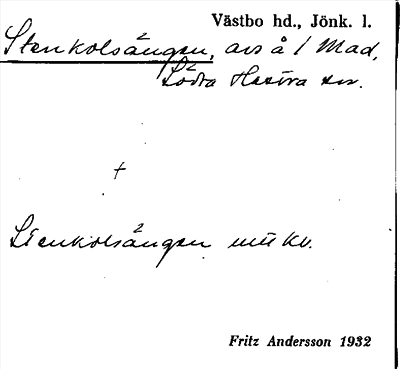 Västbo hd., Jönk. l.
Stenkolsängen, avs å / Mad,
Södra Hestra sn.
+
Stenkolsängen uttt kv.
Fritz Andersson 1932